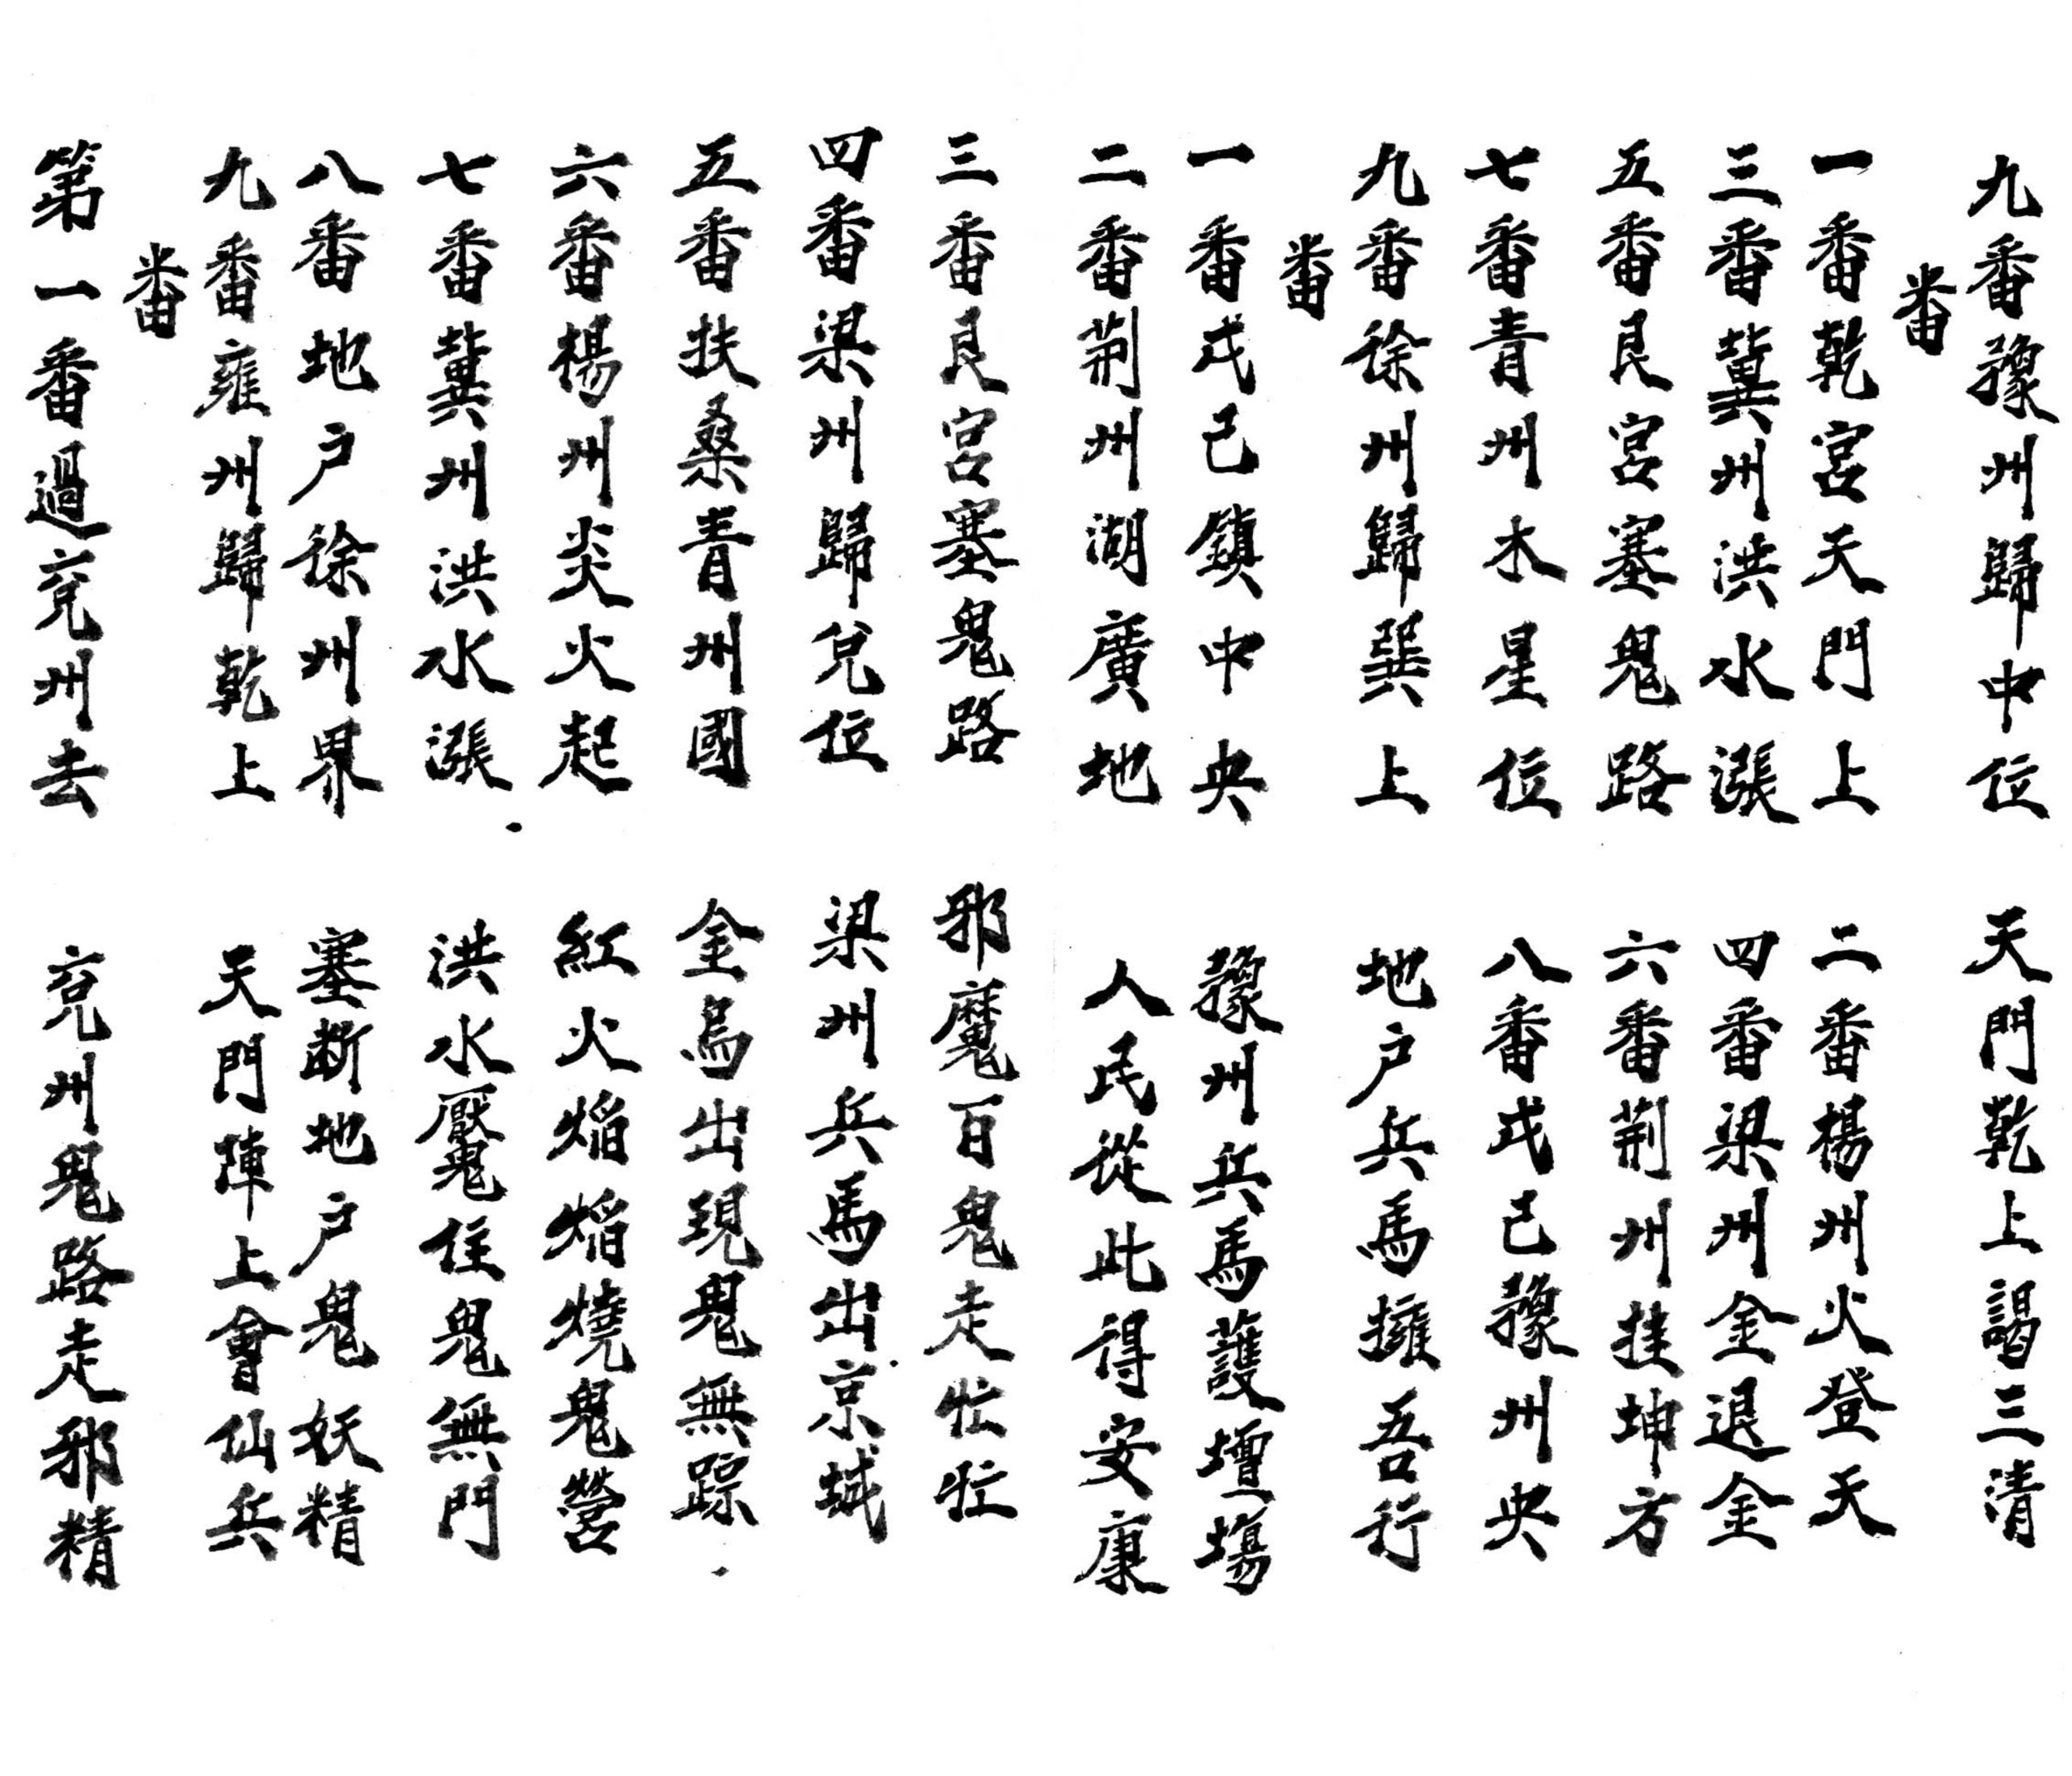 九番豫州歸中位　天門乾上謁三清
番
一番乾宮天門上　二番楊州火登天
三番冀州洪水漲　四番梁州金退金
五番艮宮塞鬼路　六番荆州挂坤方
七番青州木星位　八番戊己豫州央
九番徐州歸巽上　地户兵馬擁吾行
番
一番戊己鎮中央　豫州兵馬護壇場
二番荆州湖廣地　人民從此得安康
三番艮宮塞鬼路　邪魔百鬼走忙忙
四番梁州歸兌位　梁州兵馬出京城
五番扶桑青州國　金烏出現鬼無踪
六番楊州炎火起　紅火焰焰燒鬼營
七番冀州洪水漲　洪水魘住鬼無門
八番地户徐州界　塞断地户鬼妖精
九番雍州歸乾上　天門陣上會仙兵
番
第一番過兗州去　兗州鬼路走邪精